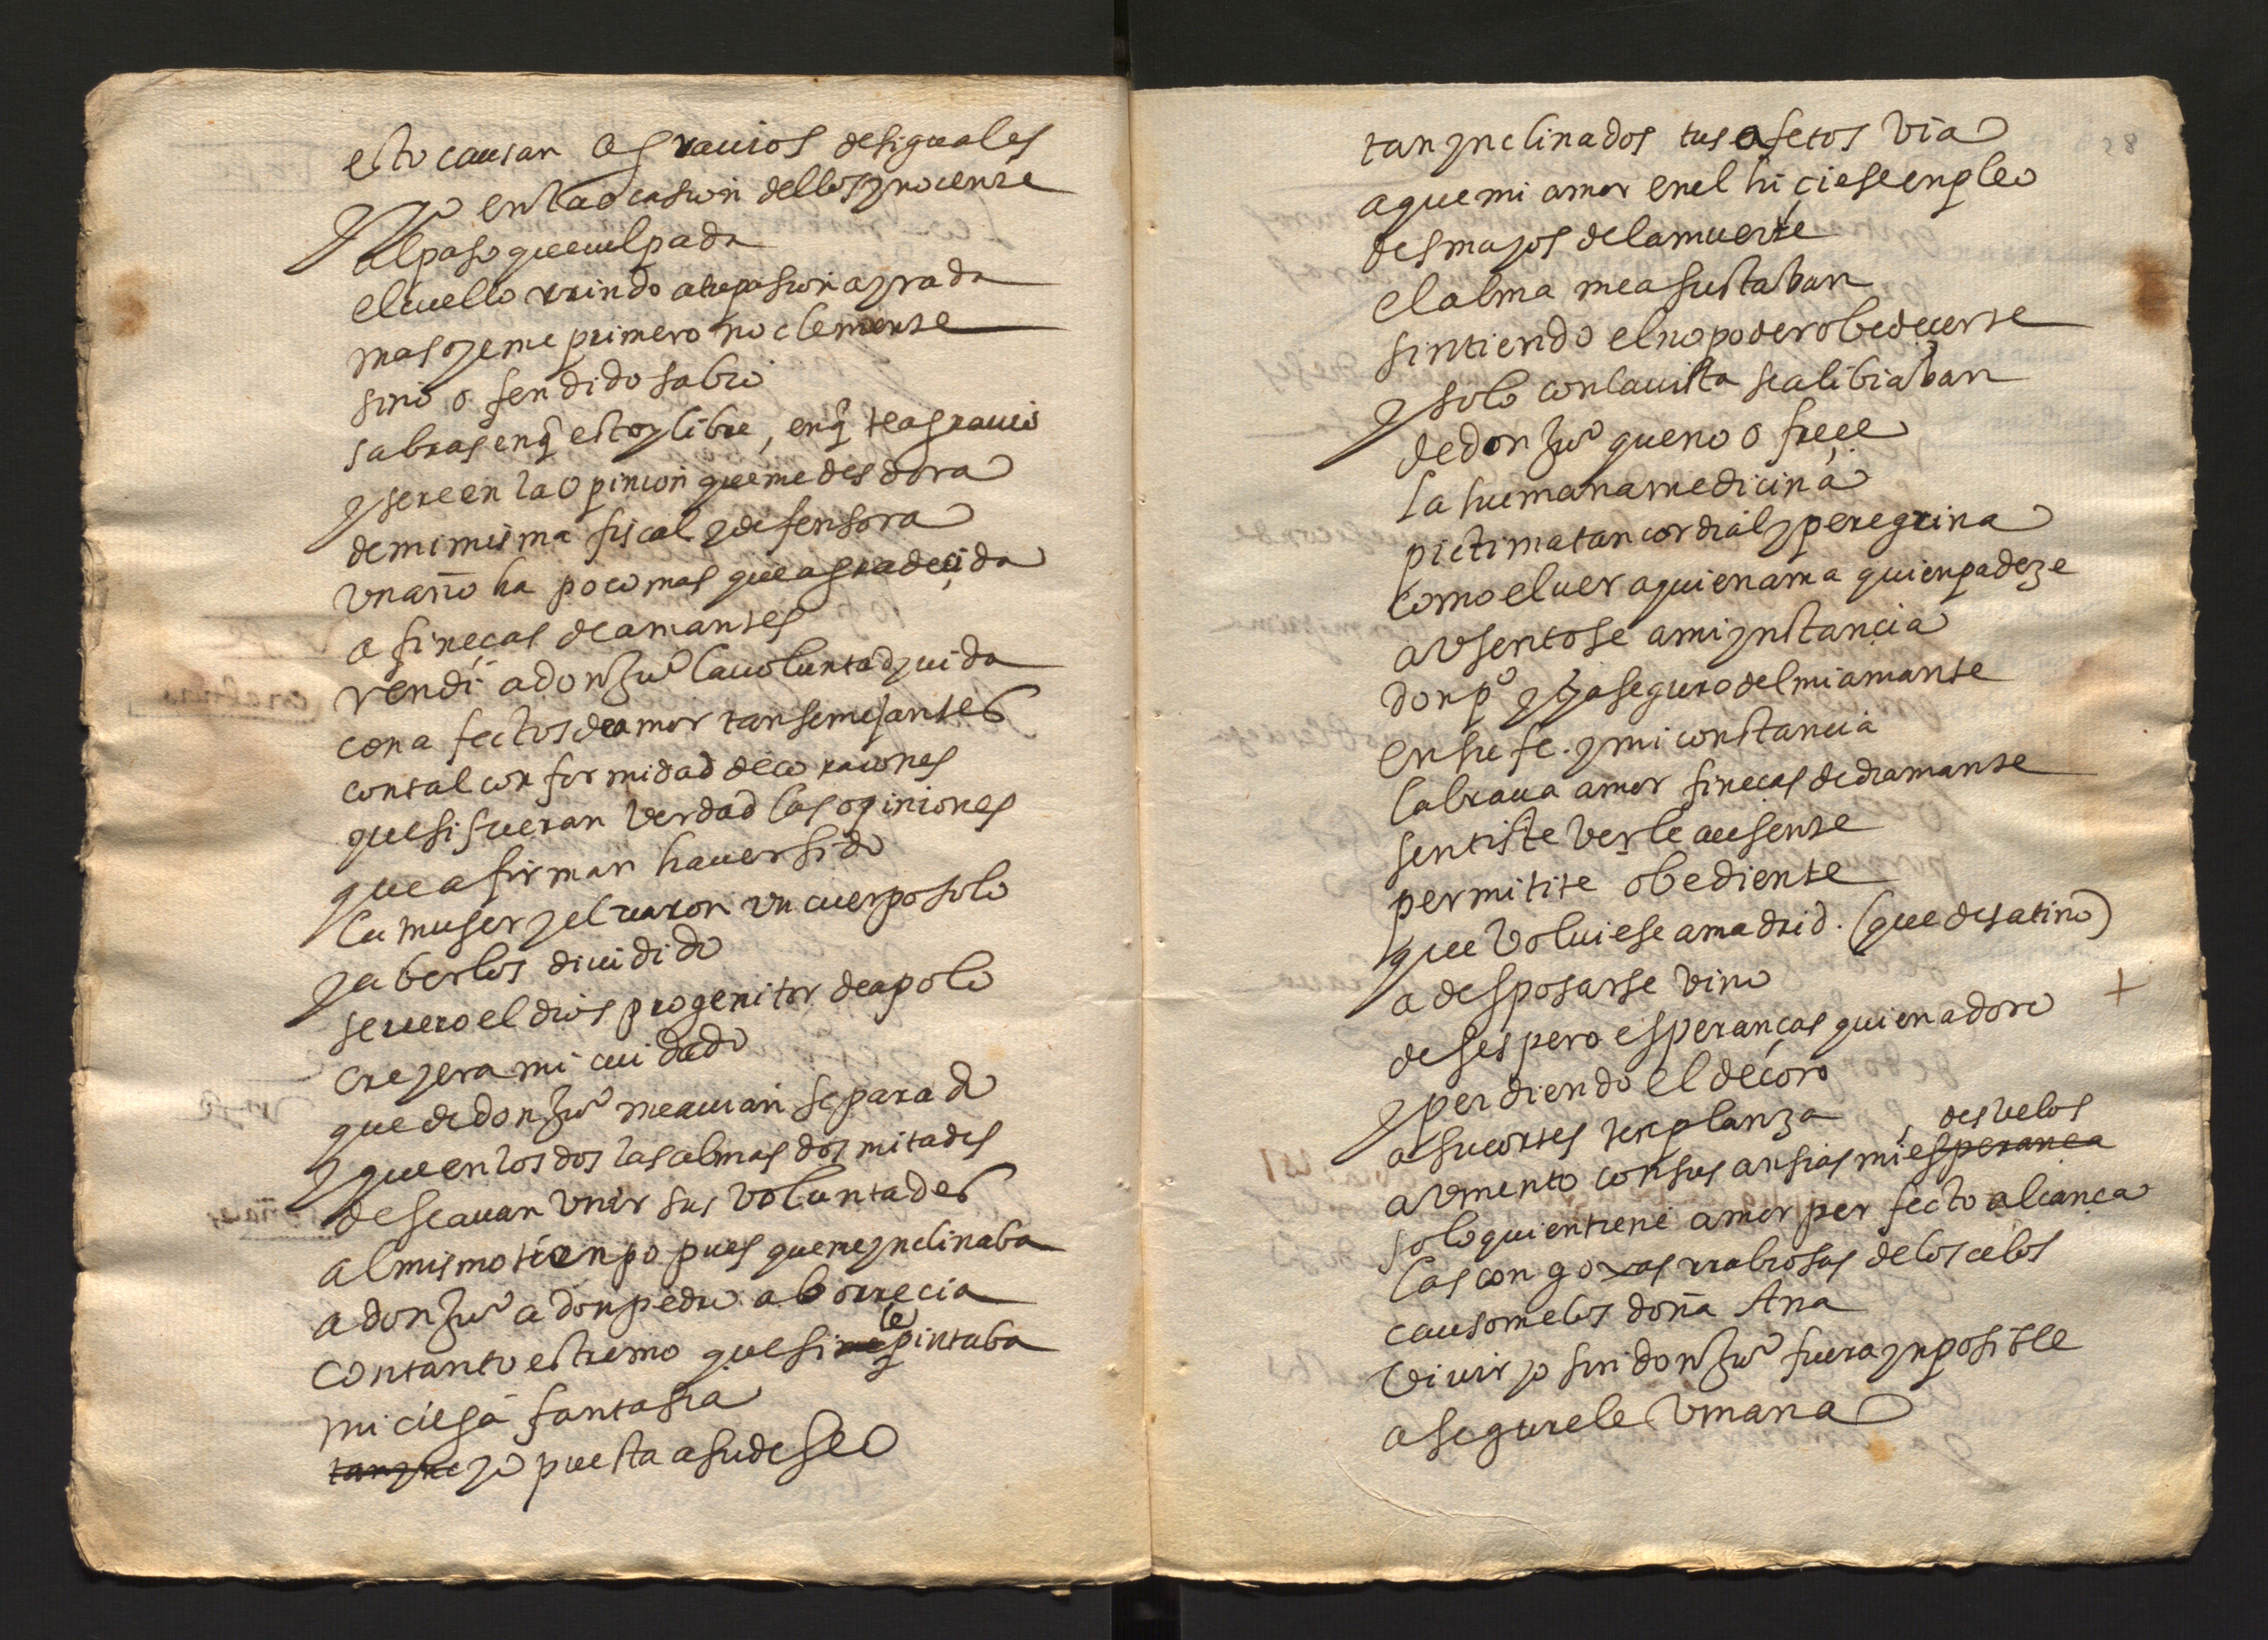 esto causan agrauios desiguales
y yo en la ocasion dellos ynocente
al paso que culpada
el cuello rrindo a tu pasion ayrada
mas oyeme primero no clemente
sino ofendido sabio
sabras en q̃ estoy libre, en q̃ te agrauio
y sere en la opinion que me desdora
de mi misma fiscal y defensora
vn año ha poco mas que agradecida
a fineças de amantes
rendi a don Juº la voluntad y uida
con afectos de amor tan semejantes
con tal conformidad de coraçones
que si fueran verdad las opiniones
que afirman hauer sido
la muger y el uaron vn cuerpo solo
y aberlos diuidido
seuero el dios progenitor de apolo
creyera mi cuidado
que de don Juº me auian separado
y que en los dos las almas dos mitades
deseauan vnir sus voluntades
al mismo tienpo pues que me ynclinaba
a don Juº a don pedro aborrecia
con tanto estremo que si me le pintaba
mi ciega fantasia
tan yne yo puesta a su deseo
58
tan ynclinados tus afetos via
a que mi amor en el hiçiese enpleo
desmayos de la muerte
el alma me asustaban
sintiendo el no poder obedecerte
y solo con la uista se alibiaban
de don Juº que no ofreçe
la humana medicina
pictima tan cordial y peregrina
como el uer a quien ama quien padeze
avsentose a mi ynstançia
don pº y ya seguro del mi amante
en su fe. y mi constancia
labraua amor fineças de diamante
sentiste verle ausente
permitite obediente
que voluiese a madrid. (que desatino)
a desposarse vino
desespero esperanças quien adoro
y perdiendo el decoro
a su cortes tenplanza
desvelos
avmento con sus ansias mi esperança
solo quien tiene amor perfecto alcança
las congoxas rrabiosas de los celos
causomelos doña Ana
viuir yo sin don Juº fuera ynposible
asegurele vmana